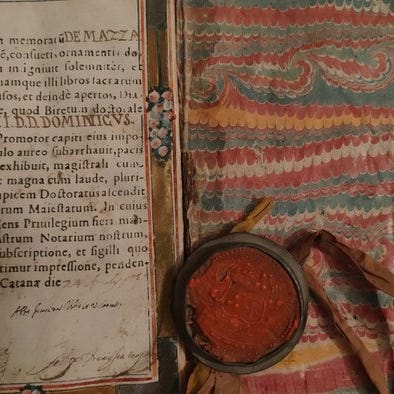 m memoratũ DE MAZZA
ẽ, consueti, ornamenti do
in igniuit solemnitèr, et
namque illi libros sacrarum
usos, et deindè apertos, Di
, quod Biretum doctorale
I.D.D. DOMINICVS.
Promotor capiti eius impo
ulo aureo subarrhauit, pacis
exhibuit, magistrali cum
t magna cũm laude, pluri
apicem Doctoratus ascendit
rum Maiestatum. In cuius
ens Priuilegium fieri man
strum Notarium nostrum,
ubscriptione, et sigilli quo
timur impressione, penden
Catanæ die